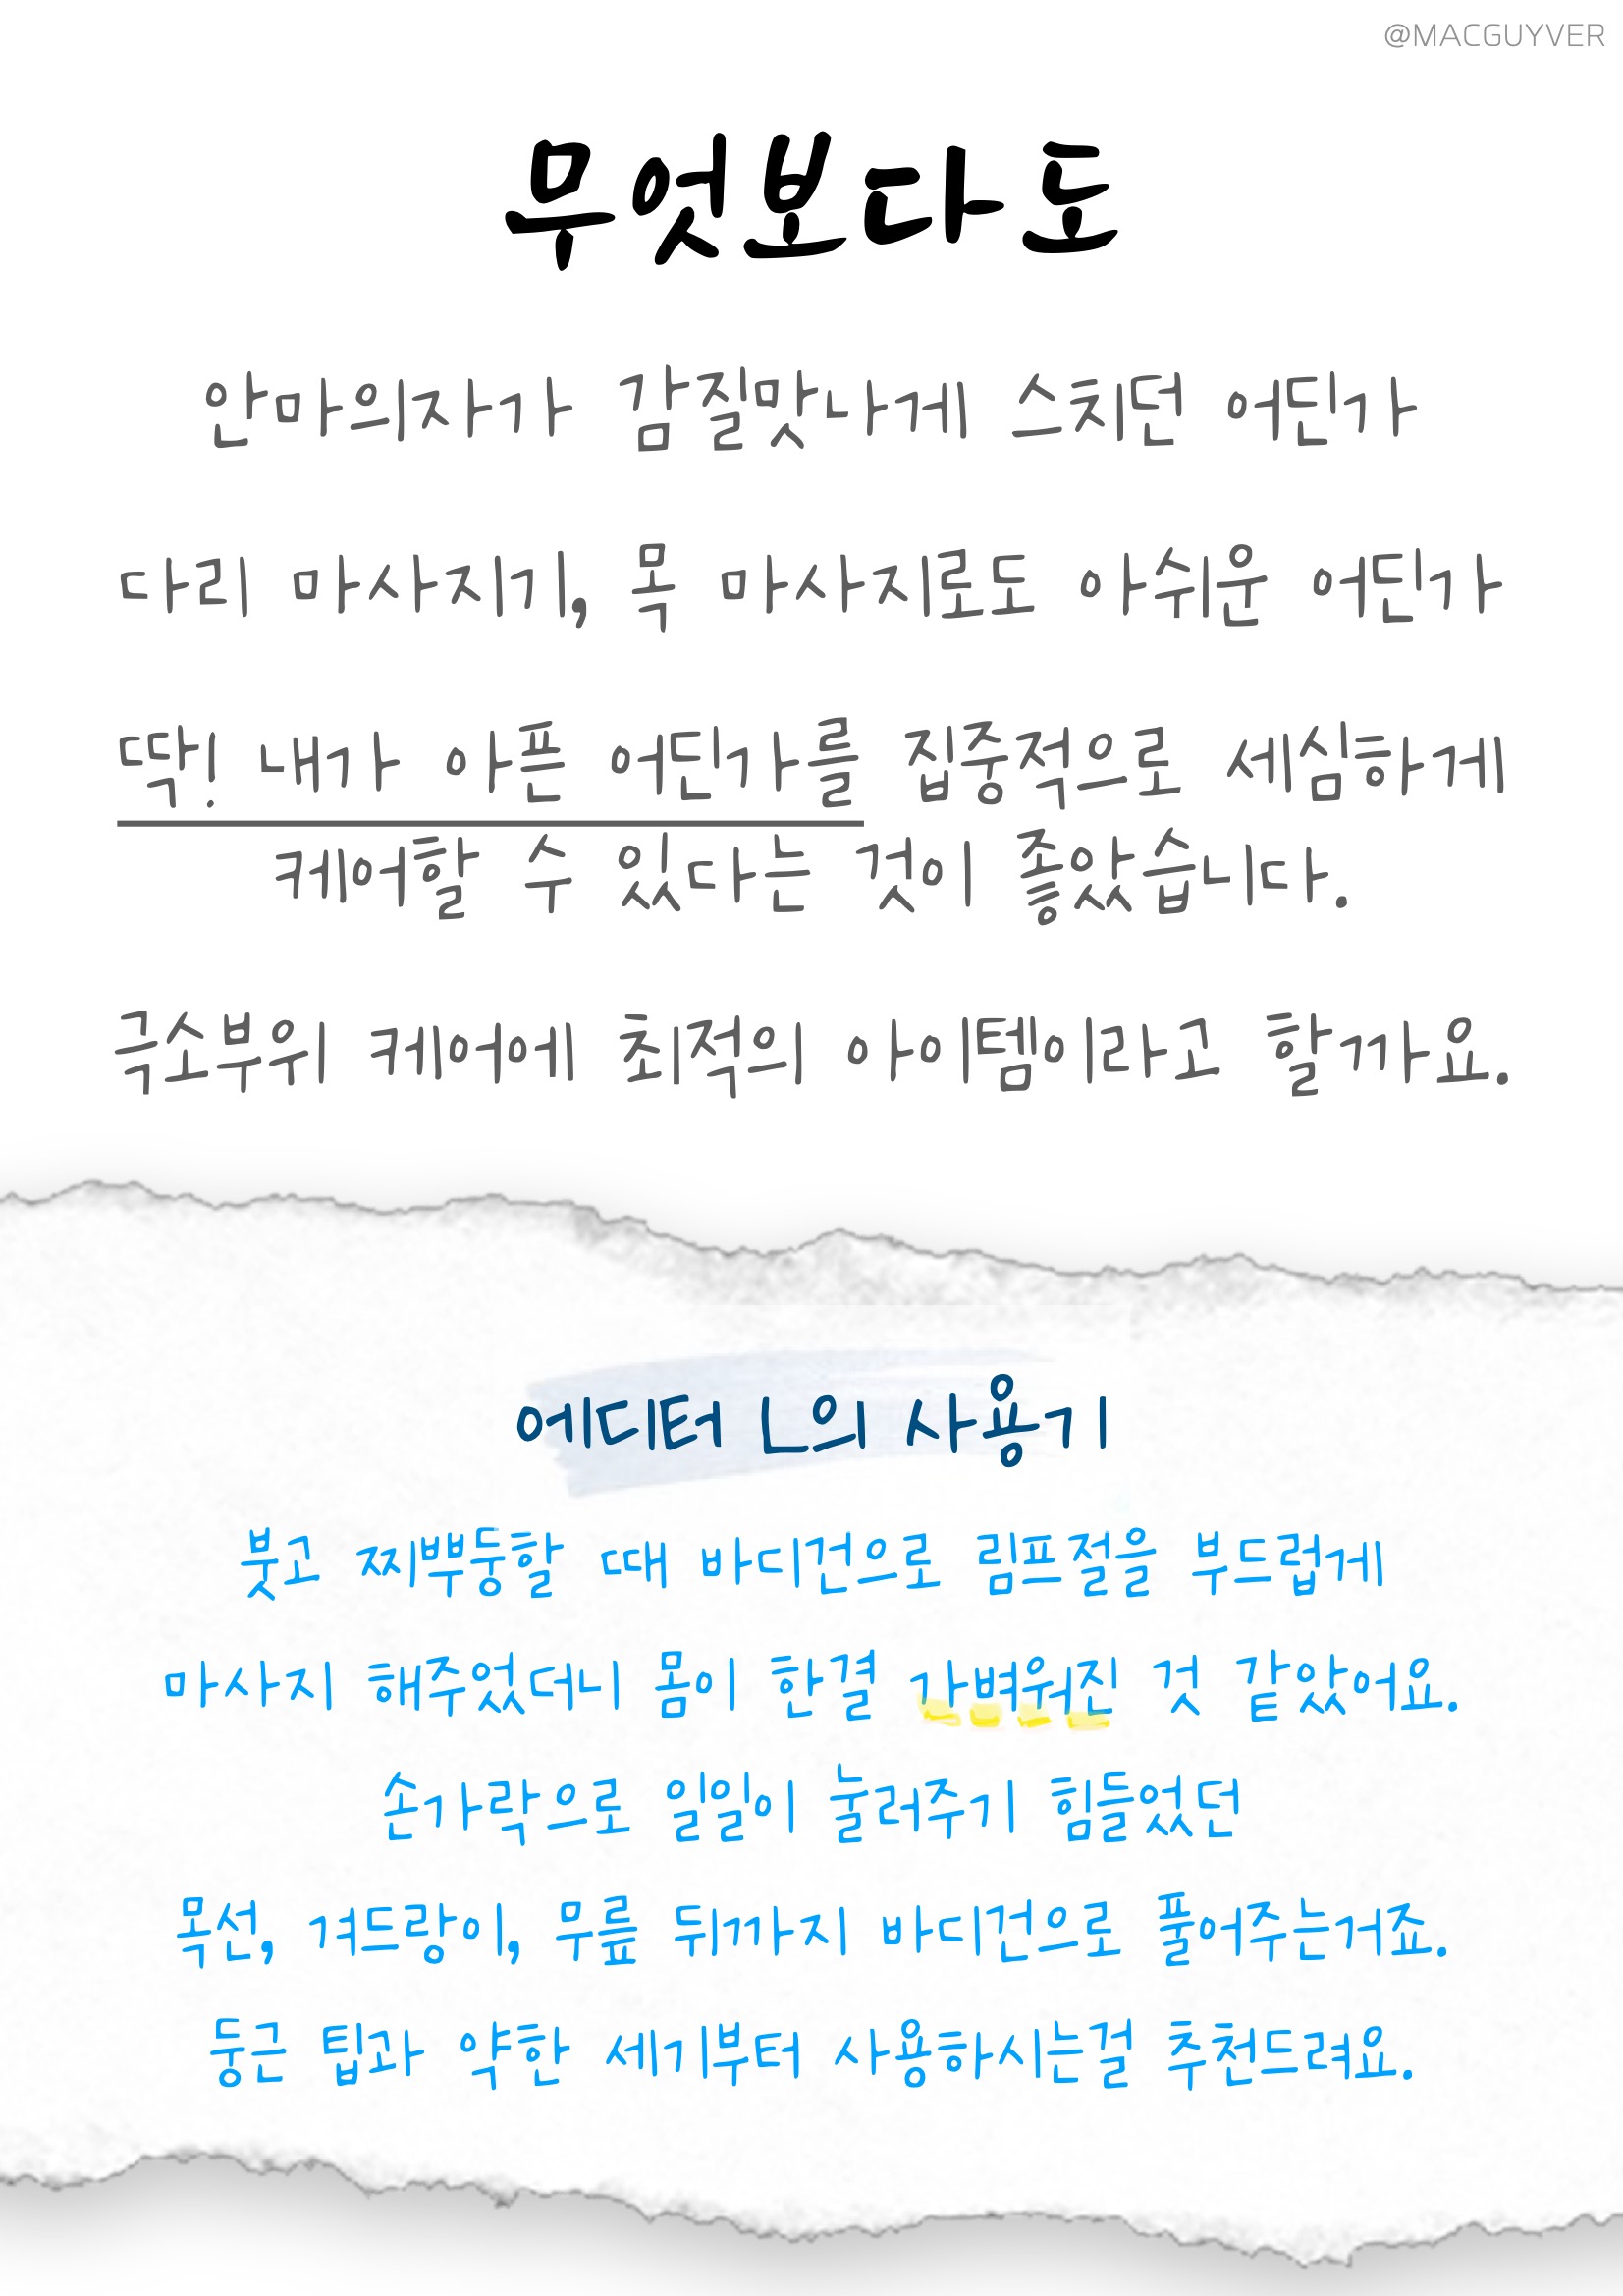 @MACGUYVER
무엇보다도
안마의자가 감질맛나게 스치던 어딘가
다리 마사지기, 목 마사지로도 아쉬운 어딘가
딱! 내가 아픈 어딘가를 집중적으로 세심하게
케어할 수 있다는 것이 좋았습니다.
극소부위 케어에 최적의 아이템이라고 할까요.
에디터 L의 사용기
붓고 찌뿌둥할 때 바디건으로 림프절을 부드럽게
마사지 해주었더니 몸이 한결 가벼워진 것 같았어요.
손가락으로 일일이 눌러주기 힘들었던
목선, 겨드랑이, 무릎 뒤까지 바디건으로 풀어주는거죠.
둥근 팁과 약한 세기부터 사용하시는걸 추천드려요.